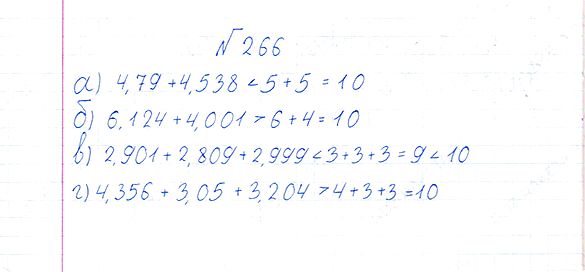 №266
а) 4,79 + 4,538 < 5 + 5 = 10
б) 6,124 + 4,001 > 6 + 4 = 10
в) 2,901 + 2,809 + 2,999 < 3 + 3 + 3 = 9 < 10
г) 4,356 + 3,05 + 3,204 > 4 + 3 + 3 = 10